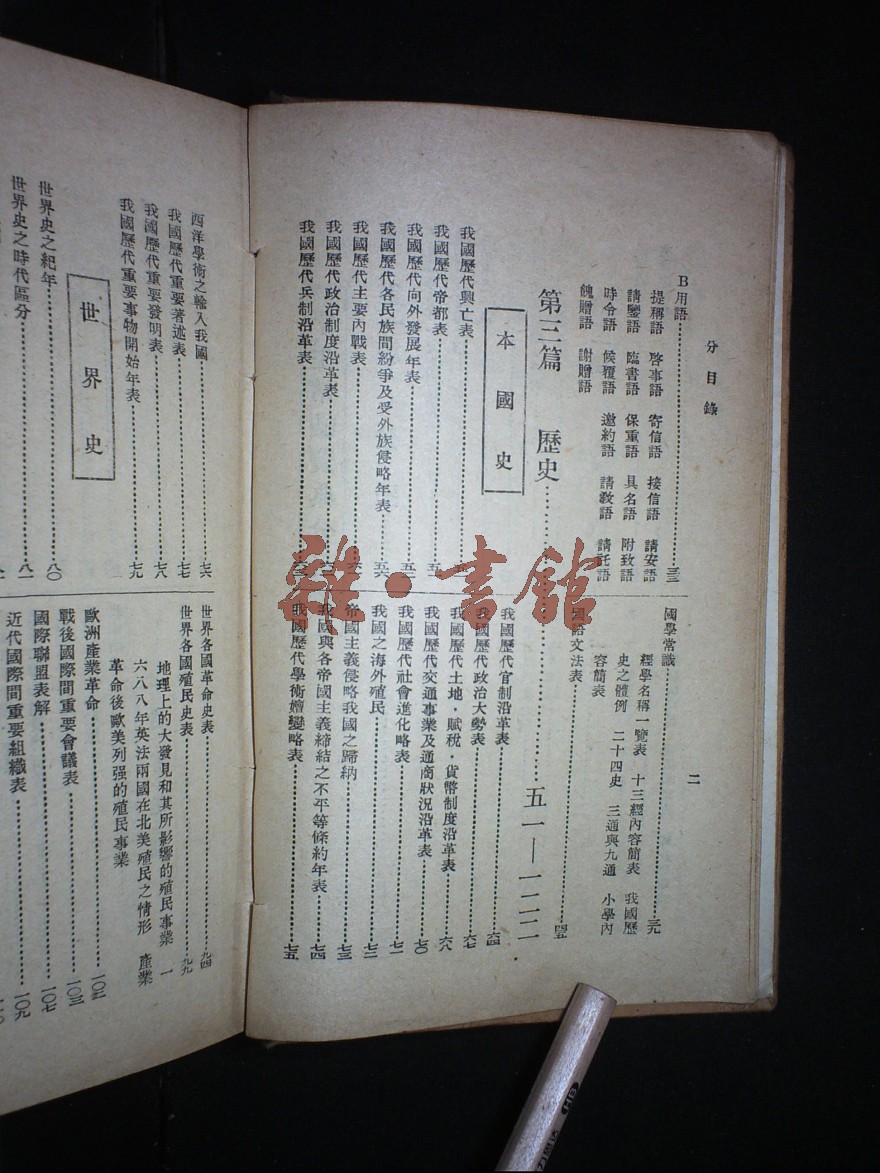 分目錄
二
B用語 三三
提稱語 啓事語 寄信語 接信語 請安語
請鑒語 臨書語 保重語 具名語 附致語
時令語 候覆語 邀約語 請敎語 請託語
餽贈語 謝贈語
國學常識 三九
經學名稱一覽表 十三經內容簡表 我國歷
史之體例 二十四史 三通與九通 小學內
容簡表
國語文法表
第三篇 歷史 五一—一二二
本國史
我國歷代興亡表
我國歷代帝都表 五一
我國歷代向外發展年表 五二
我國歷代各民族間紛爭及受外族侵略年表 五六
我國歷代主要內戰表
我國歷代政治制度沿革表
我國歷代兵制沿革表
我國歷代官制沿革表 六四
我國歷代政治大勢表 六七
我國歷代土地·賦稅·貨幣制度沿革表 六八
我國歷代交通事業及通商狀況沿革表 七〇
我國歷代社會進化略表 七二
我國之海外殖民 七三
帝國主義侵略我國之歸納 七三
我國與各帝國主義締結之不平等條約年表 七四
我國歷代學術嬗變略表 七五
西洋學術之輸入我國 七六
我國歷代重要著述表 七七
我國歷代重要發明表 七八
我國歷代重要事物開始年表 七九
世界史
世界史之紀年 八〇
世界史之時代區分 八一
世界各國革命史表 九四
世界各國殖民史表 九九
地理上的大發見和其所影響的殖民事業 一
六八八年英法兩國在北美殖民之情形 產業
革命後歐美列强的殖民事業
歐洲產業革命 一〇二
戰後國際間重要會議表 一〇三
國際聯盟表解 一〇七
近代國際間重要組織表 一〇九
雜·書館
HB